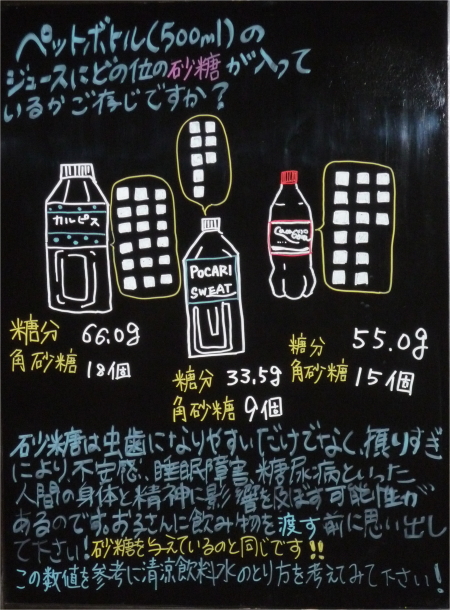 ペットボトル(500ml)の
ジュースにどの位の砂糖が入って
いるかご存じですか?
カルピス
POCARI
SWEAT
糖分 66.0g
角砂糖 18個
糖分 33.5g
角砂糖 9個
糖分 55.0g
角砂糖 15個
砂糖は虫歯になりやすいだけでなく、摂りすぎ
により、不安感、睡眠障害、糖尿病といった
人間の身体と精神に影響を及ぼす可能性が
あるのです。お子さんに飲み物を渡す前に思い出し
て下さい!砂糖を与えているのと同じです!!
この数値を参考に清涼飲料水のとり方を考えてみて下さい!